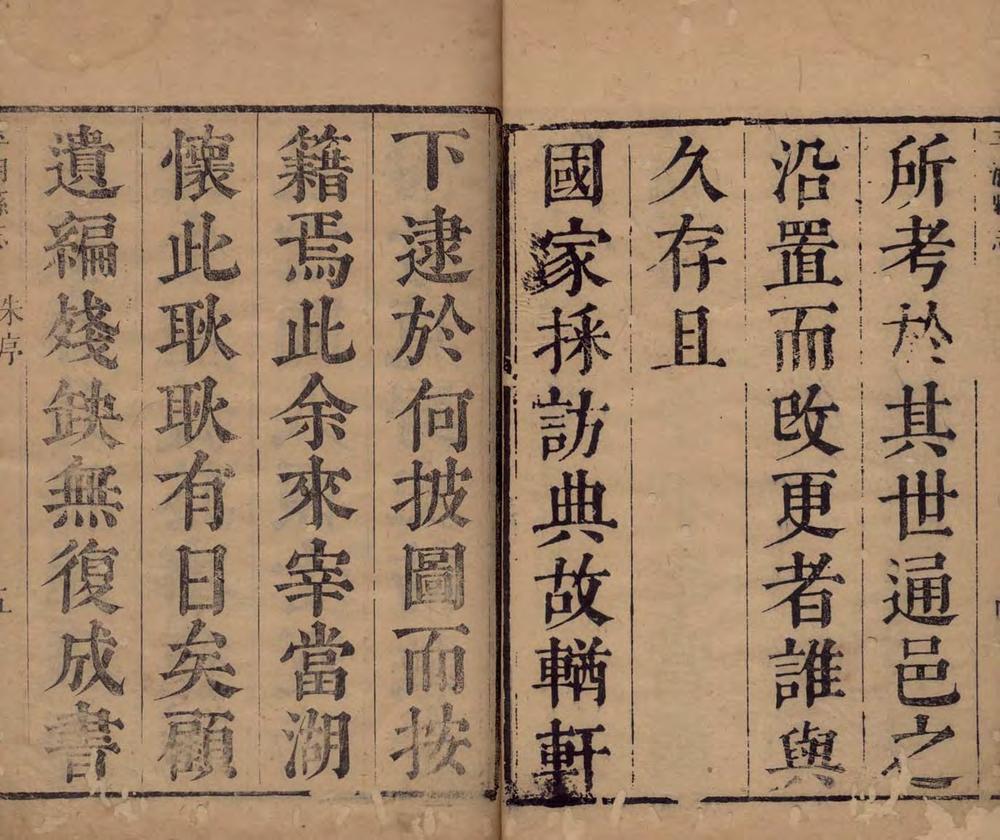 所考於其世通邑之
沿置而改更者誰與
久存且
國家採訪典故輶軒
下逮於何披圖而按
籍焉此余來宰當湖
懷此耿耿有日矣顧
遺編殘缺無復成書
朱序